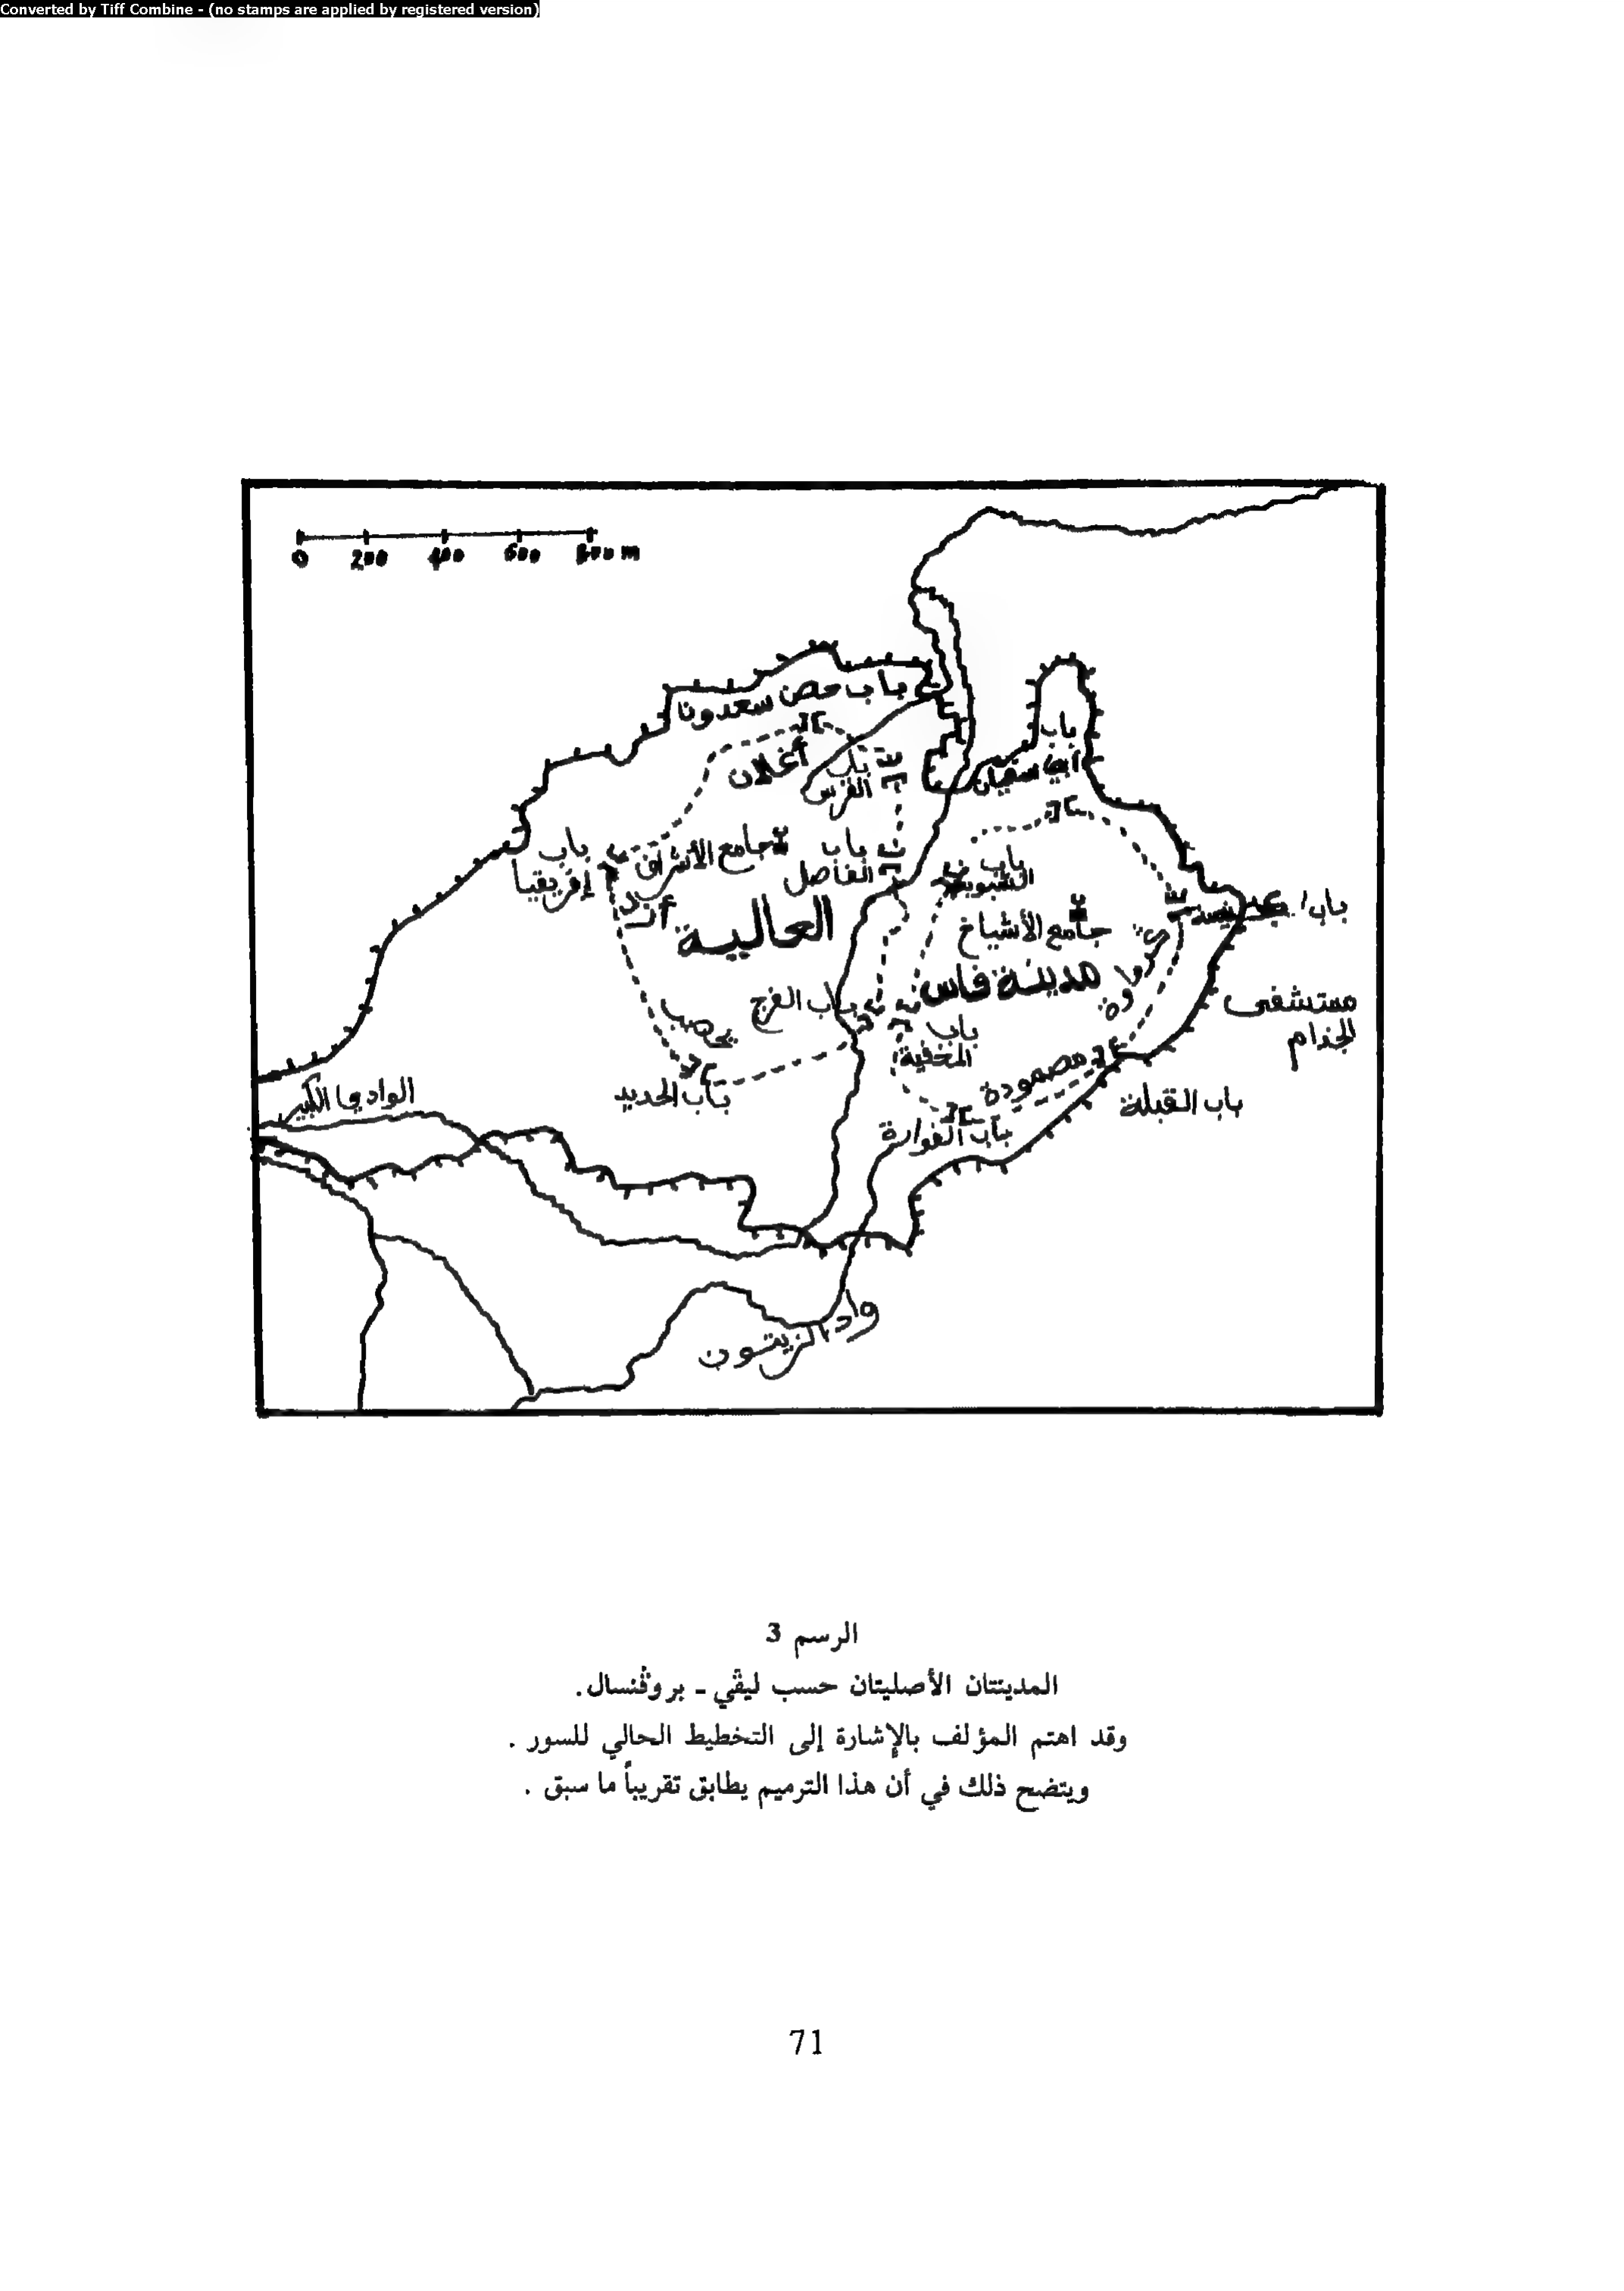 Converted by Tiff Combine - (no stamps are applied by registered version)
0 200 400 600 800 m
باب حصن سعدونا
باب
أبي سفيان
أغلان
باب
الفرس
باب
إفريقيا
جامع الأشراف
باب
الفاصل
باب
جامع الأشياخ
العالية
مدينة فاس
باب
مستشفى
الجذام
باب الفرج
باب
المخفية
يحصب
مصمودة
باب الحديد
الوادي الكبير
باب القبلة
باب الفوارة
واد الزيتون
الرسم 3
المدينتان الأصليتان حسب ليڤي - بروڤنسال.
وقد اهتم المؤلف بالإشارة إلى التخطيط الحالي للسور .
ويتضح ذلك في أن هذا الترميم يطابق تقريباً ما سبق .
71